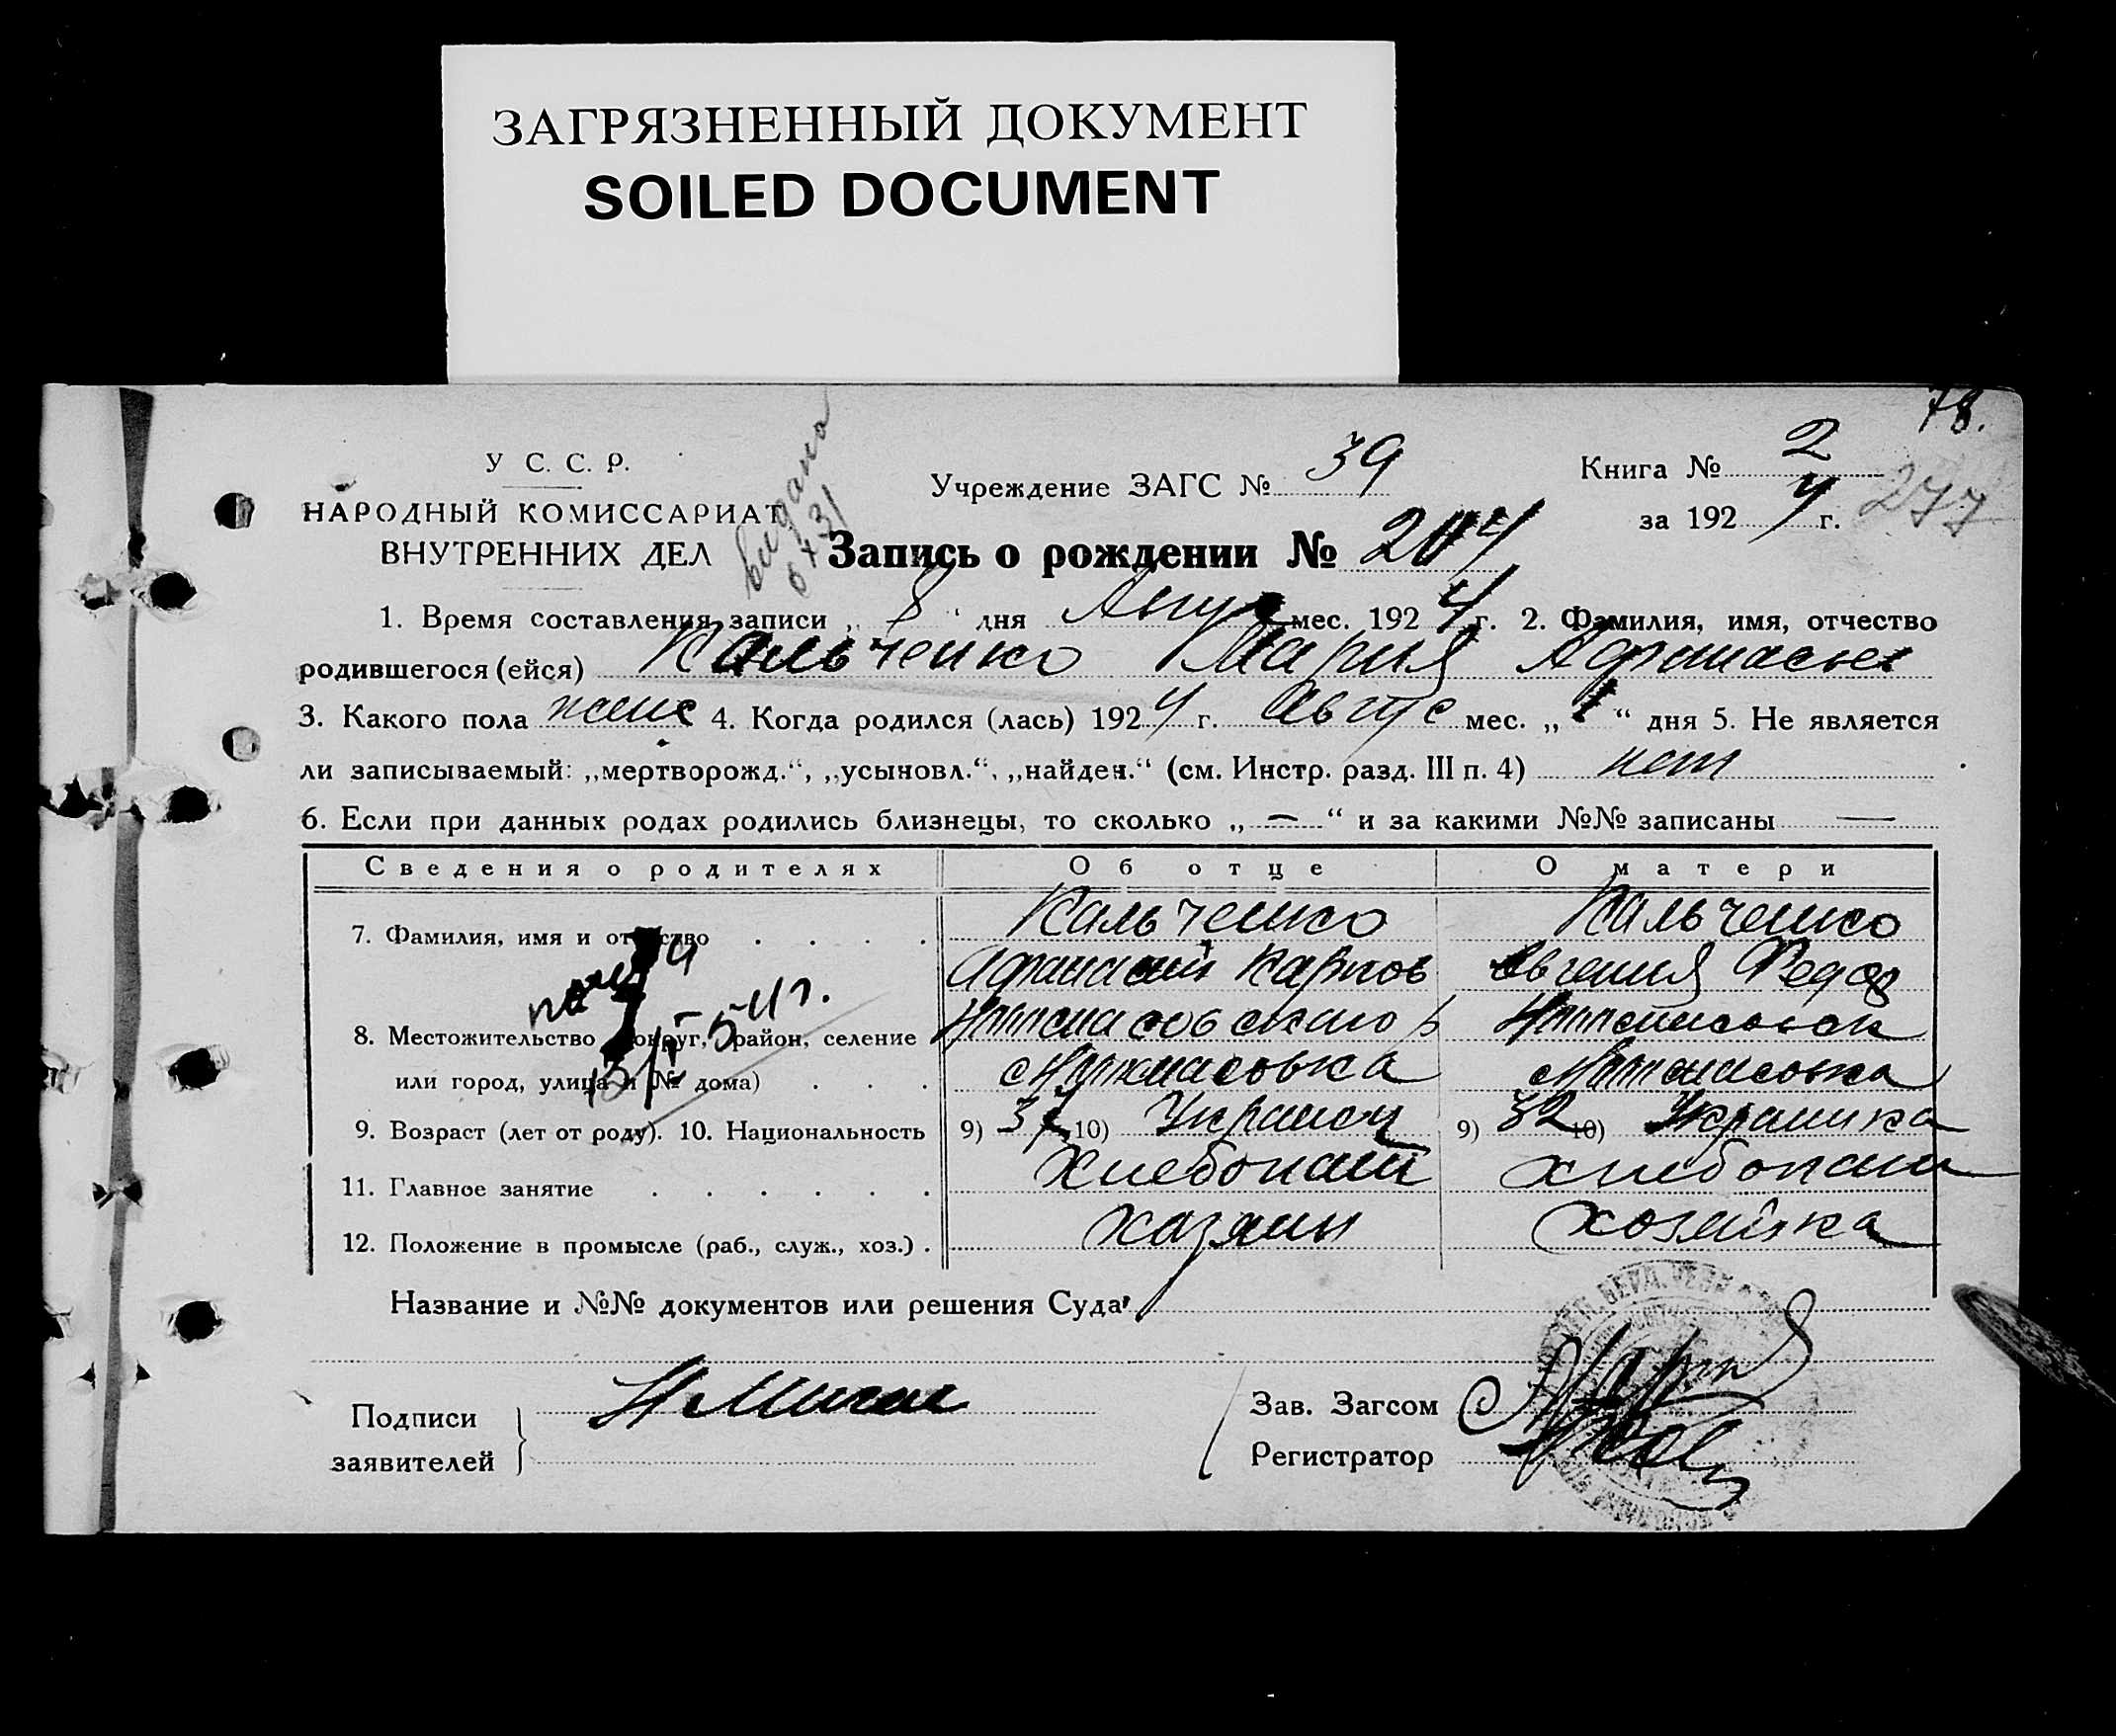 ЗАГРЯЗНЕННЫЙ ДОКУМЕНТ
SOILED DOCUMENT
78.
У С. С. Р.
НАРОДНЫЙ КОМИССАРИАТ
ВНУТРЕННИХ ДЕЛ
Учреждение ЗАГС № 39
Книга № 2
за 192 4 г. 277
Запись о рождении № 204
1. Время составления записи „ 8 " дня мес. 192 4 г. 2. Фамилия, имя, отчество
родившегося (ейся) Кальченко Мария Афанасьев
3. Какого пола женс 4. Когда родился (лась) 192 4 г. Август мес. „ 1 “ дня 5. Не является
ли записываемый: „мертворожд.“, „усыновл.“, „найден.“ (см. Инстр. разд. III п. 4) нет
6. Если при данных родах родились близнецы, то сколько „ — “ и за какими №№ записаны —
Сведения о родителях Об отце О матери
7. Фамилия, имя и отчество . . . . Кальченко Кальченко
Афанасий Карпов Евгения Федор
8. Местожительство (округ, район, селение
или город, улица и № дома) . . .
9. Возраст (лет от роду). 10. Национальность 9) 37 10) Украинец 9) 32 10) Украинка
11. Главное занятие . . . . . . Хлебопаш хлебопаш
12. Положение в промысле (раб., служ., хоз.) . хазяин хозяйка
Название и №№ документов или решения Суда
Подписи
заявителей
Зав. Загсом
Регистратор